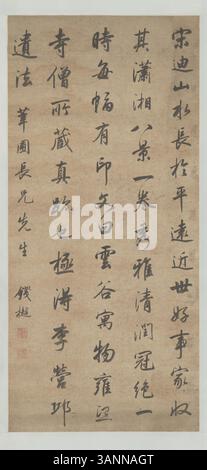 宋迪山水長於平遠近世好事家收
其瀟湘八景一卷秀雅清潤冠絕一
時每幅有印章曰雲谷寓物雍熙
寺僧所藏真跡也極得李營邱
遺法 葦圃長兄先生 錢樾
alamy
Image ID: 3ANNAGT
www.alamy.com